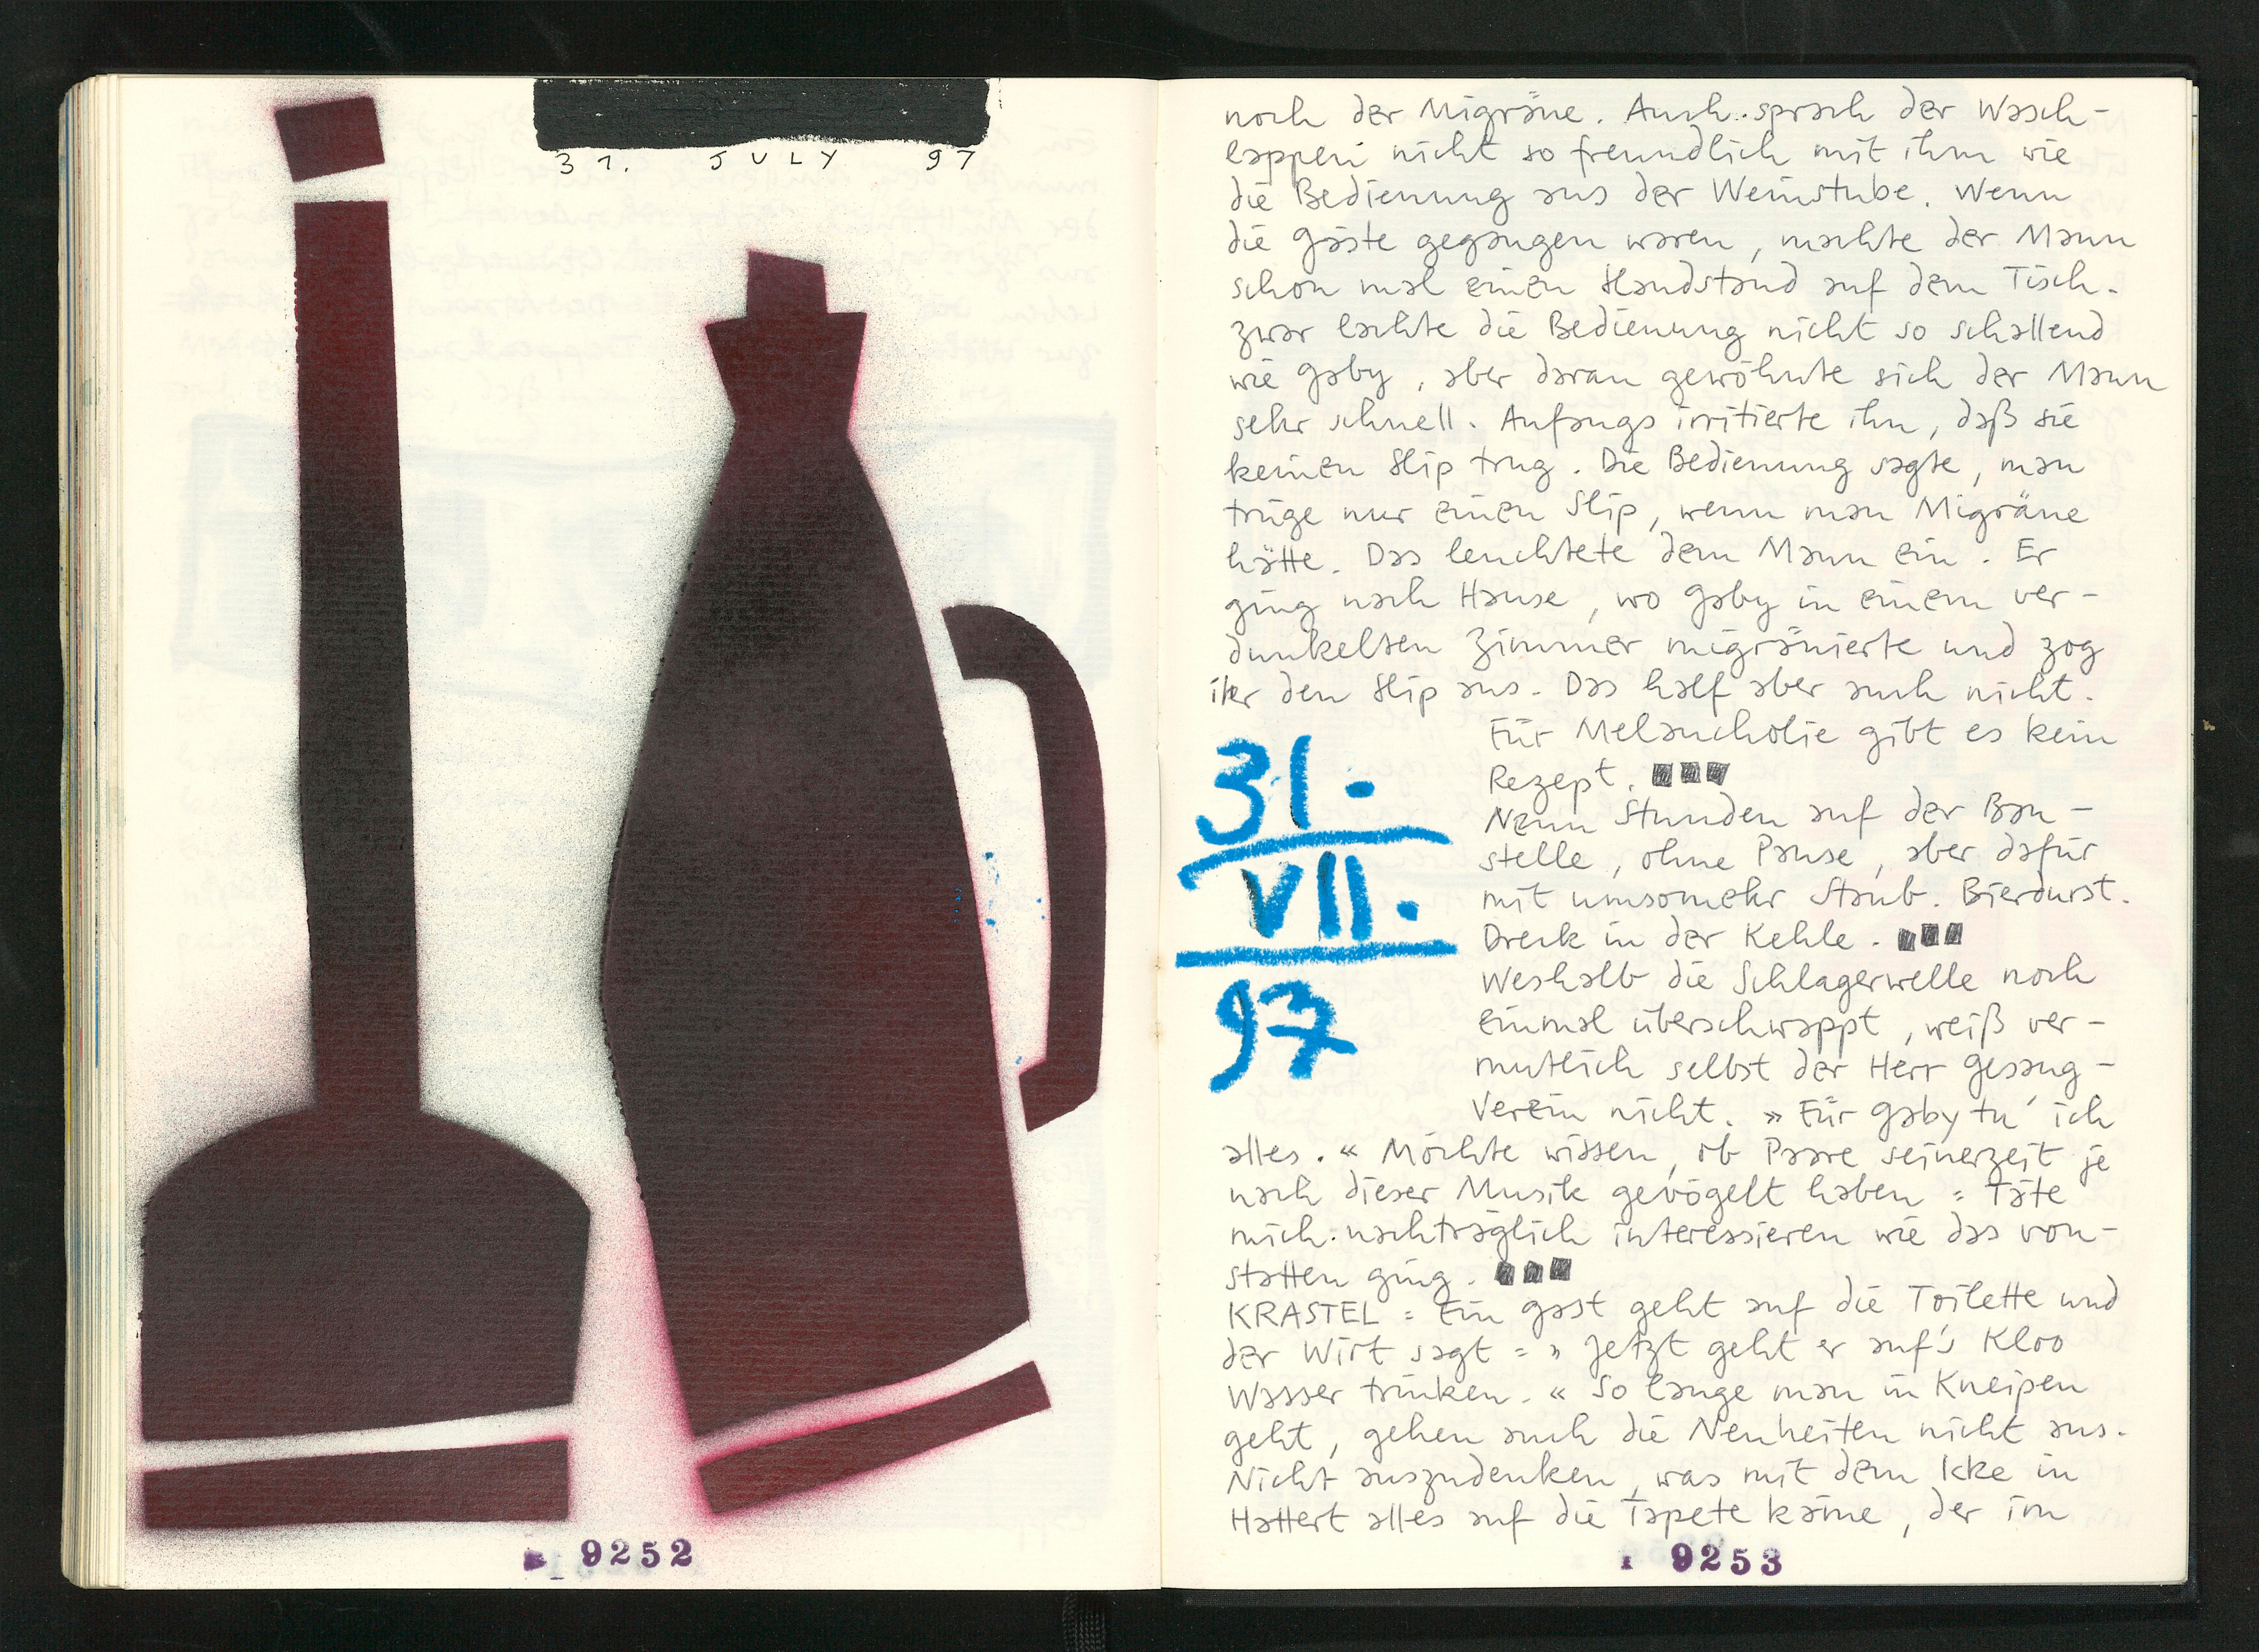 31. JULY 97
9252
noch der Migräne. Auch sprach der Wasch-
lappen nicht so freundlich mit ihm wie
die Bedienung aus der Weinstube. Wenn
die Gäste gegangen waren, machte der Mann
schon mal einen Handstand auf dem Tisch.
Zwar lachte die Bedienung nicht so schallend
wie Gaby, aber daran gewöhnte sich der Mann
sehr schnell. Anfangs irritierte ihn, daß sie
keinen Slip trug. Die Bedienung sagte, man
trüge nur einen Slip, wenn man Migräne
hätte. Das leuchtete dem Mann ein. Er
ging nach Hause, wo Gaby in einem ver-
dunkelten Zimmer migränierte und zog
ihr den Slip aus. Das half aber auch nicht.
Für Melancholie gibt es kein
Rezept.
31.
VII.
97
Neun Stunden auf der Bau-
stelle, ohne Pause, aber dafür
mit umsomehr Staub. Bierdurst.
Dreck in der Kehle.
Weshalb die Schlagerwelle noch
einmal überschwappt, weiß ver-
mutlich selbst der Herr Gesang-
Verein nicht. »Für Gaby tu' ich
alles.« Möchte wissen, ob Paare seinerzeit je
nach dieser Musik gevögelt haben = Täte
mich nachträglich interessieren wie das von-
statten ging.
KRASTEL = Ein Gast geht auf die Toilette und
der Wirt sagt = »Jetzt geht er auf's Kloo
Wasser trinken.« So lange man in Kneipen
geht, gehen auch die Neuheiten nicht aus.
Nicht auszudenken, was mit dem Icke in
Hattert alles auf die Tapete käme, der im
9253